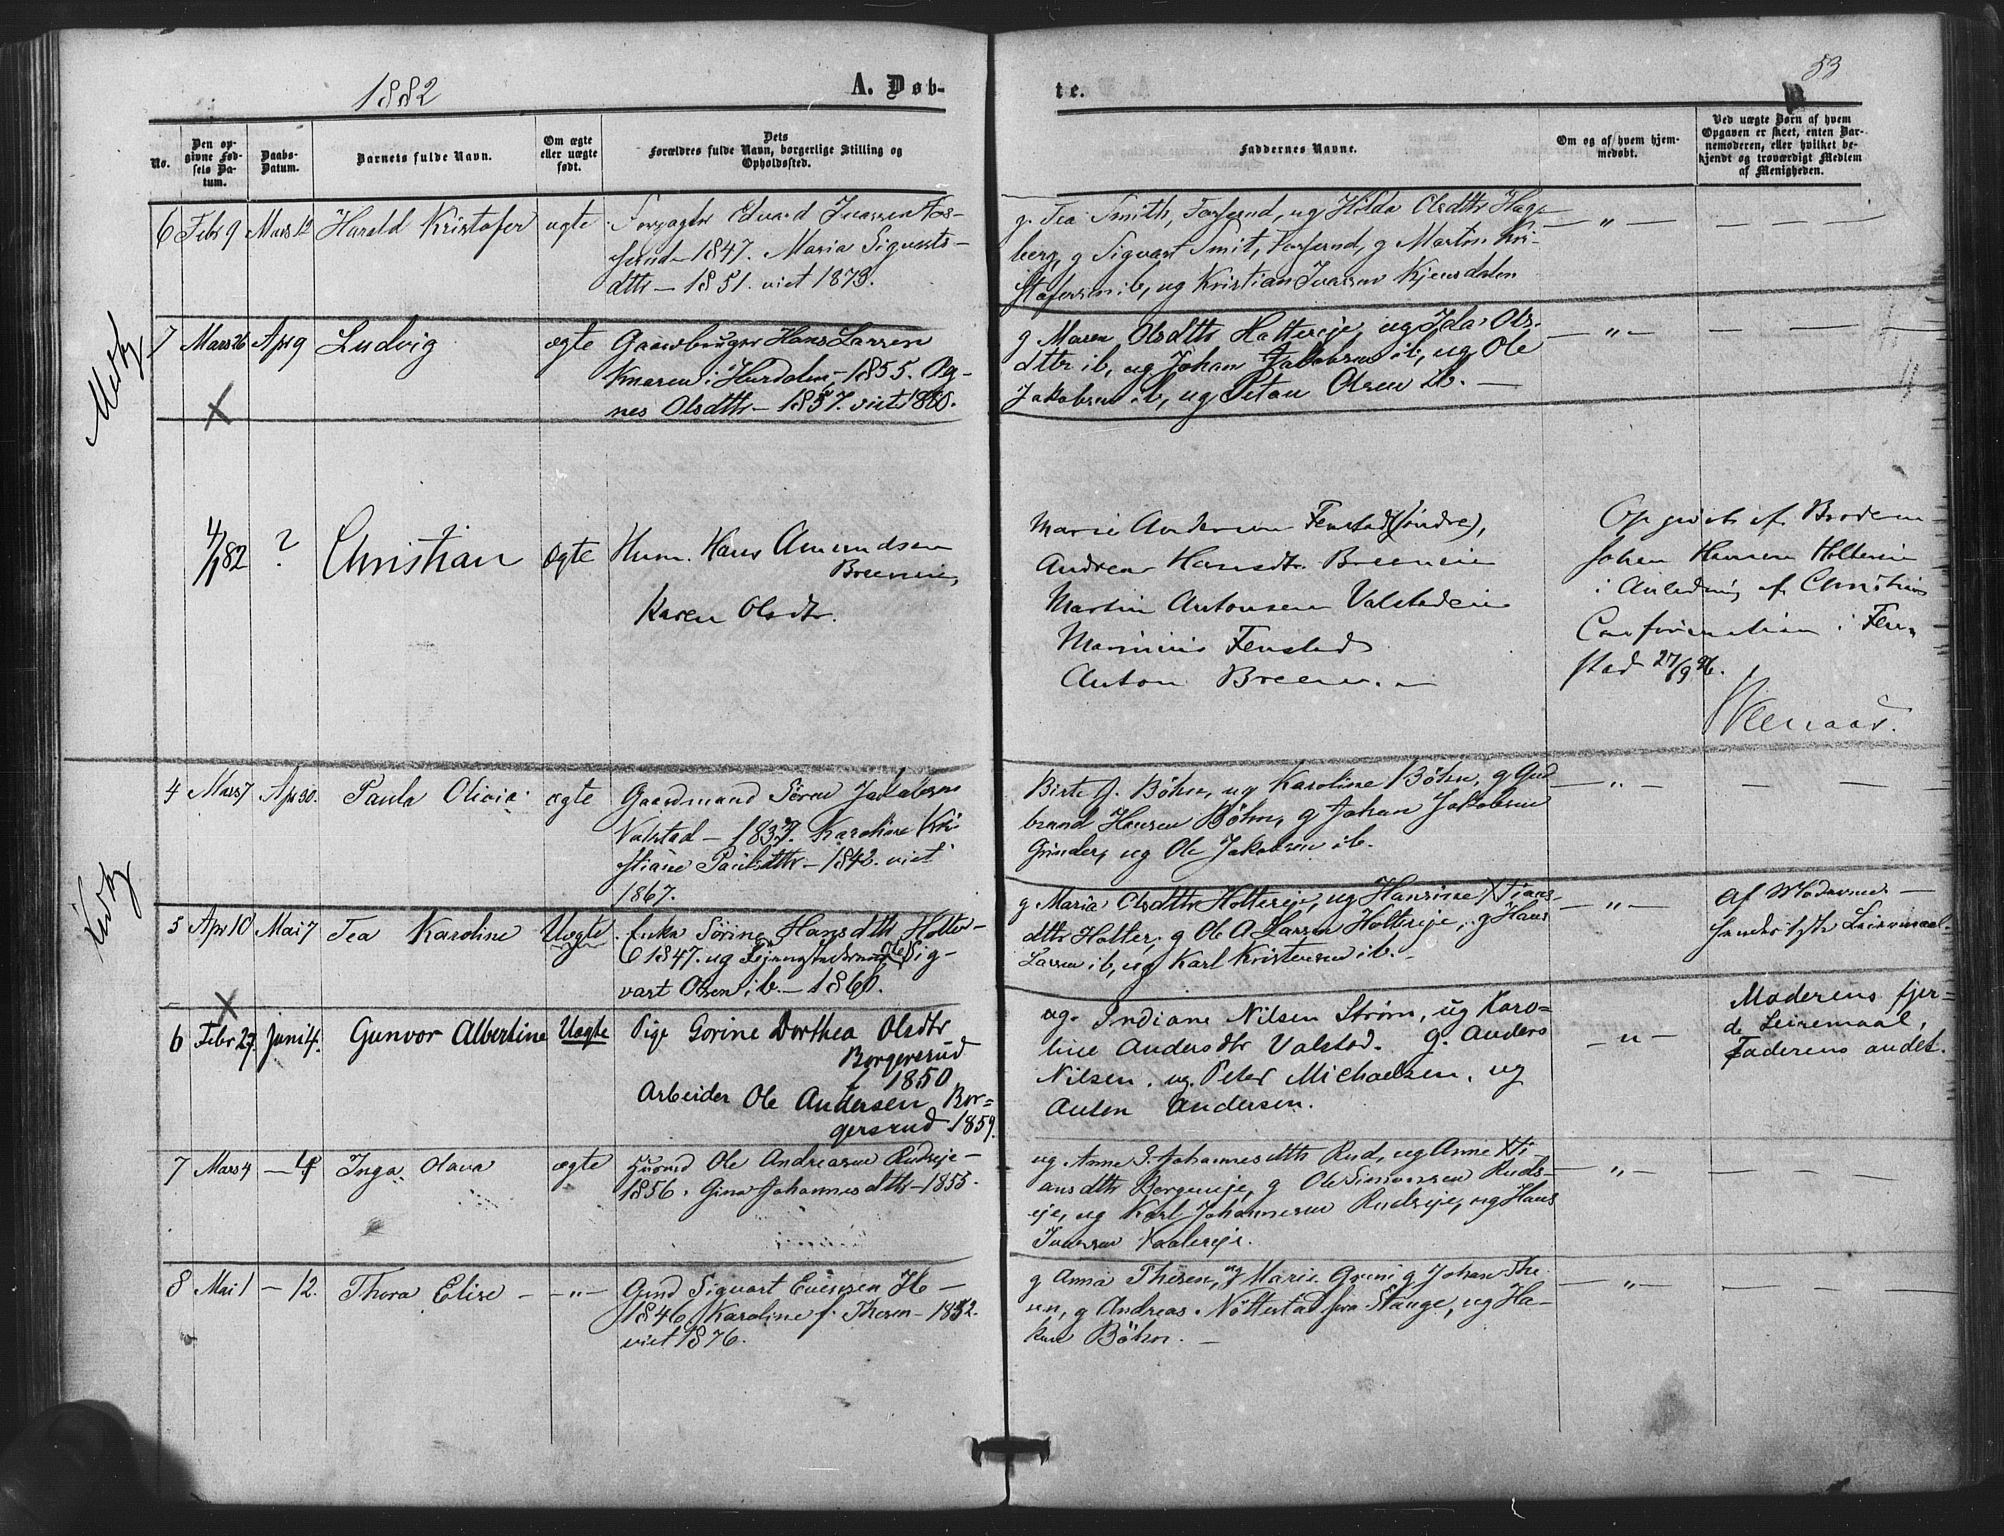 1882
A. Døb-
te.
53
No.
Den op-
givne Fød-
sels Da-
tum.
Daabs-
Datum.
Barnets fulde Navn.
Om ægte
eller uægte
født.
Dets
Forældres fulde Navn, borgerlige Stilling og
Opholdssted.
Faddernes Navne.
Om og af hvem hjem-
medøbt.
Ved uægte Børn af hvem
Opgaven er skeet, enten Bar-
nemoderen, eller hvilket be-
kjendt og troværdigt Medlem
af Menigheden.
6 Febr 9 Mars 12 Harald Kristofer ægte Edvard Ivarsen Fos-
serud - 1847. Maria Sigvarts-
dttr - 1851. viet 1873.
g. Tea Smith, Fosserud, ug Hilda Olsdttr Hage-
berg, g Sigvart Smit, Fosserud, g Marton Kri-
stofersen ib, ug Kristian Ivarsen Kjensdalen
— " —
7 Mars 26 Apr 9 Ludvig ægte Gaardbruger Hans Larsen
Knaren i Hurdalen, - 1855. Ag-
nes Olsdttr - 1857. viet 1880.
g Maren Olsdttr Holtereje, ug Ida Ols-
dttr ib, ug Johan Jakobsen ib, ug Ole
Jakobsen ib, ug Olsen ib. —
— " —
4/1 82 ? Christian ægte Husm. Hans Amundsen
Breeneie,
Karen Olsdtr.
Marie Andersen Fenstad (søndre),
Andrea Hansdtr. Breeneie
Martin Antonsen Valstadeie
Marinius Fenstad
Anton Breen. —
Opgivet af Broderen
Johan Hansen Holtereie
i Anledning af Christians
Confirmation i Fen-
stad 27/9 96.
4 Mars 7 Apr 30. Paula Olivia ægte Gaardmand Søren Jakobsen
Valstad - 1833. Karoline Kri-
stiane Paulsdttr - 1842. viet
1867.
Birte f. Bøhn, ug Karoline Bøhn, g Gud-
brand Hansen Bøhn, g Johan Jakobsen
Grinder, ug Ole Jakobsen ib.
— " —
5 Apr 10 Mai 7 Tea Karoline Uægte Enke Sørine Hansdttr Holter-
1847. ug Sig-
vart Olsen ib. - 1860.
g Maria Olsdttr Holtereje, ug Hansine Kristians-
dttr Holter, g Ole A Larsen Holtereje, g Hans
Larsen ib, ug Karl Kristensen ib. -
— " —
Af Moderens —
Leiermaal.
6 Febr 27. Juni 4. Gunvor Albertine Uægte Pige Gorine Dorthea Olsdtr
Borgersrud
f 1850
Arbeider Ole Andersen Bor-
gersrud 1859.
ug. Indiane Nilsen Strøm, ug Karo-
line Andersdtr Valstad. g. Anders
Nilsen, ug. Peter Michaelsen, ug
Anton Andersen.
— " —
Moderens fjer-
de Leiremaal,
Faderens andet.
7 Mars 4 — 4 Inga Olava ægte Husmd Ole Andreasen Rudseje -
1856. Gina Johannesdttr - 1855.
ug Anne S. Johannesdttr Rud, ug Anne Kristi-
ansdttr Borgereje, g Ole Simonsen Ruds-
eje, ug Karl Johannesen Rudseje, ug Hans
Ivarsen Kaalseje.
— " —
8 Mai 1 — 12. Thora Elise — — " — Gmd Sigvart Evensen He -
1846, Karoline f. Thesen - 1852.
viet 1876.
g Anna Thesen, ug Marie Greni g Johan The-
sen, g Andreas Nøtterstad fra Stange, ug Ha-
kon Bøhn. —
— " —